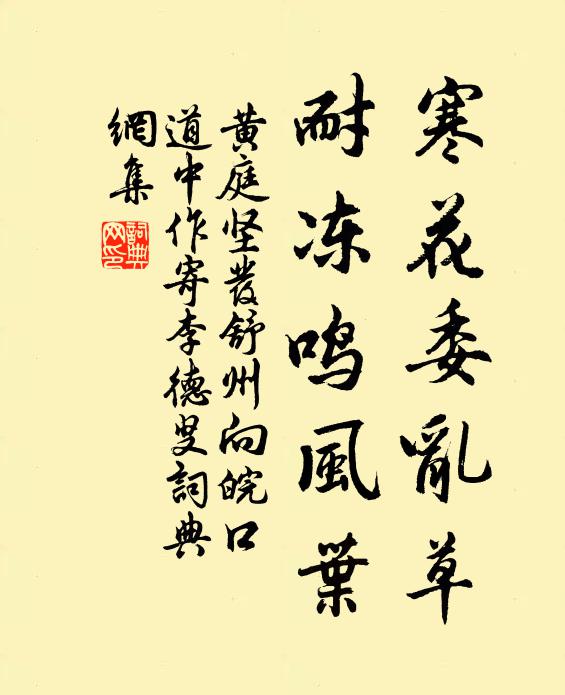 寒花委亂草
耐冻鸣風葉
黄庭坚發舒州向皖口
道中作寄李德叟詞典
網集
詞典
网印